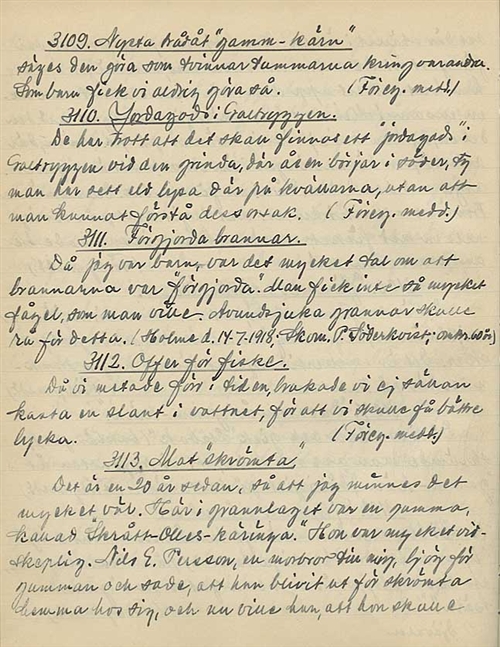 3109. Nysta trådåt "gamm-kärn"
säges den göra som tvinnar tummarna kring varandra.
Som barn fick vi aldrig göra så. (Föreg. medd.)
3110. Jordagods i Galtryggen.
De har trott att det skall finnas ett jordagods i
Galtryggen vid den grinda, där åsen börjar i söder, ty
man har sett eld lysa där på kvällarna, utan att
man kunnat förstå dess orsak. (Föreg. medd.)
3111. Förgjorda brannar.
Då jag var barn, var det mycket tal om att
brannarna var "förgjorda". Man fick inte så mycket
fågel, som man ville. Avundsjuka grannar skulle
rå för detta. (Holme d. 14-7-1918, Skom. P. Söderkvist, omkr. 60 år)
3112. Offer för fiske.
Då vi metade förr i tiden, brukade vi ej sällan
kasta en slant i vattnet, för att vi skulle få bättre
lycka. (Föreg. medd.)
3113. Mat "skrömta"
Det är en 20 år sedan, så att jag minnes det
mycket väl. Här i grannlaget var en gumma,
kallad "Skrått-Olles-käringa". Hon var mycket vid-
skeplig. Nils E. Persson, en morbror till mig, ljög för
gumman och sade, att han blivit ut för skrömta
hemma hos sig, och nu ville han, att hon skulle